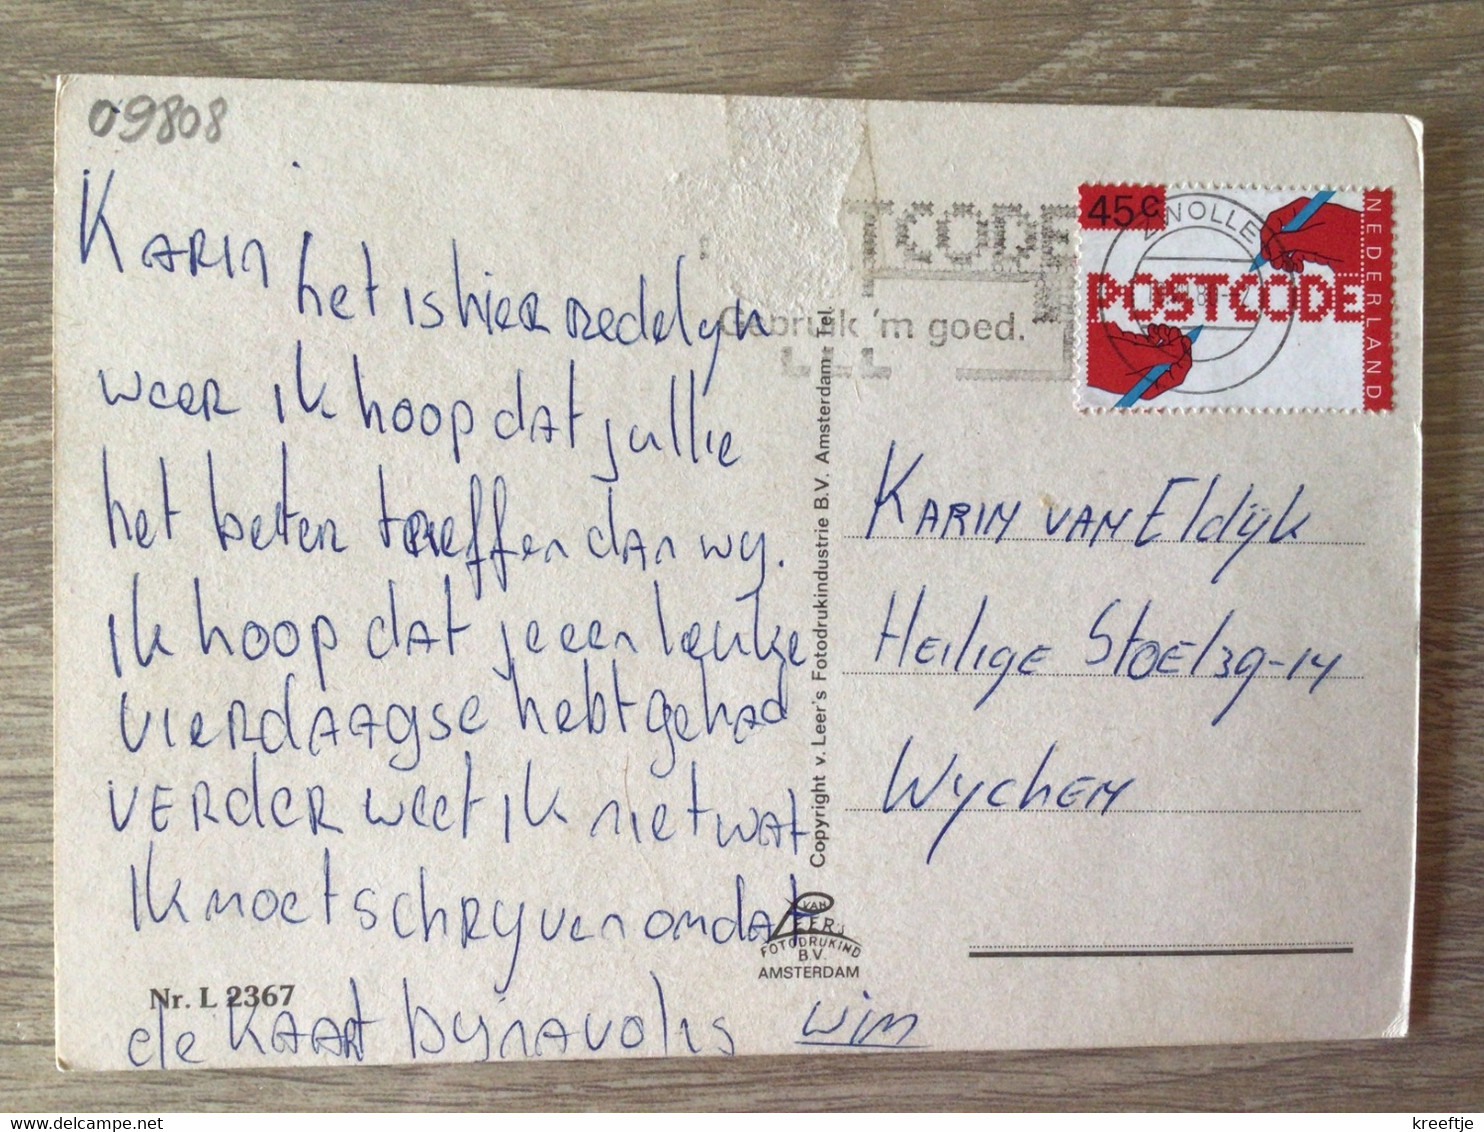 09808
Karin
het is hier redelyk
weer ik hoop dat jullie
het beter treffen dan wy.
ik hoop dat je een leuke
vierdaagse hebt gehad
VERder weet ik niet wat
Ik moet schryven omdat
de kaart byna vol is Wim
Nr. L 2367
Copyright v. Leer's Fotodrukindustrie B.V. Amsterdam - Tel.
VAN
LEER's
FOTODRUKIND
B.V.
AMSTERDAM
TCODE
Gebruik 'm goed.
ZWOLLE
45c
POSTCODE
NEDERLAND
KARIN VAN Eldijk
Heilige Stoel 39-14
Wychen
kreeftje